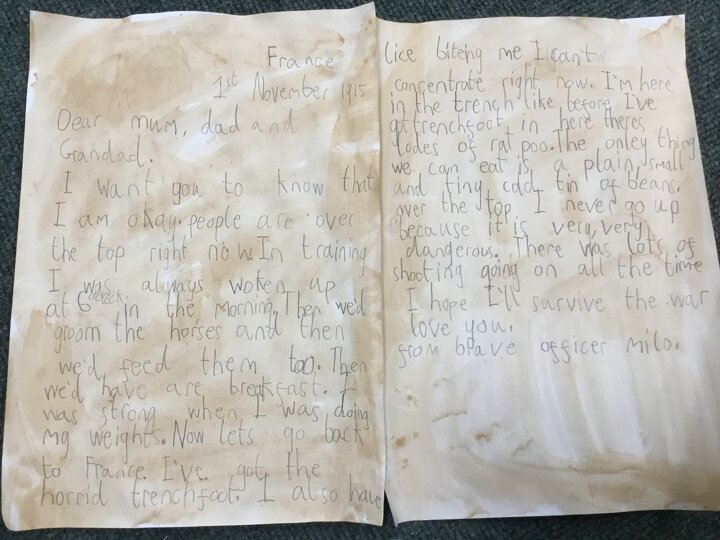 France
1st November 1915
Dear mum, dad and
Grandad.
I want you to know that
I am okay. people are over
the top right now. In training
I was always woken up
at 6 oclock in the morning. Then we'd
groom the horses and then
we'd feed them too. Then
we'd have are breakfast. I
was strong when I was doing
my weights. Now lets go back
to France. I've got the
horrid trenchfoot. I also have
lice biteing me I can't
concentrate right now. I'm here
in the trench like before I've
got trenchfoot in here theres
lodes of rat poo. The onley thing
we can eat is a plain, small
and tiny cold tin of beans.
over the top I never go up
because it is very, very
dangerous. There was lots of
shooting going on all the time
I hope I'll survive the war
love you.
from brave officer milo.